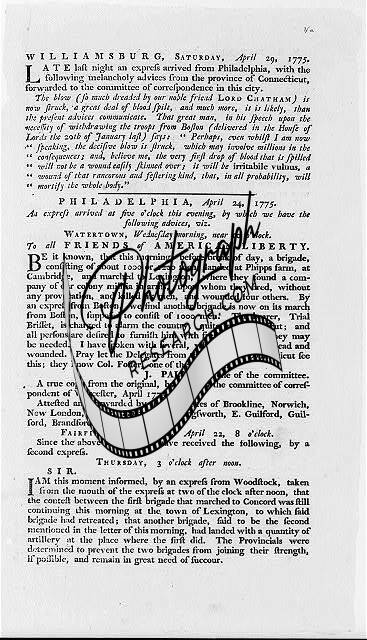 Va
WILLIAMSBURG, SATURDAY, April 29, 1775.
LATE last night an express arrived from Philadelphia, with the
following melancholy advices from the province of Connecticut,
forwarded to the committee of correspondence in this city.
The blow (so much dreaded by our noble friend LORD CHATHAM) is
now struck, a great deal of blood spilt, and much more, it is likely, than
the present advices communicate. That great man, in his speech upon the
necessity of withdrawing the troops from Boston (delivered in the House of
Lords the 20th of January last) says: " Perhaps, even whilst I am now
" speaking, the decisive blow is struck, which may involve millions in the
" consequences; and, believe me, the very first drop of blood that is spilled
" will not be a wound easily skinned over; it will be irritabile vulnus, a
" wound of that rancorous and festering kind, that, in all probability, will
" mortify the whole body."
PHILADELPHIA, April 24, 1775.
An express arrived at five o'clock this evening, by which we have the
following advices, viz.
WATERTOWN, Wednesday morning, near
To all FRIENDS of AMERICAN LIBERTY.
BE it known, that this morning before break of day, a brigade,
consisting of about 1000 at Phipps farm, at
Cambridge, and marched they found a com-
pany of whom they fired, without
any and wounded four others. By
an express from Boston, we find another brigade is now on its march
from Boston, supposed to consist of 1000. The Trial
Brisset, is charged to alarm the country and
all persons are to furnish him with they may
be needed. I have spoken with several, dead and
wounded. Pray let the Delegates from see
this; they know Col. Foster, one of the
J. PAL of the committee.
A true copy from the original, by the committee of corres-
pondent of Worcester, April 177
Attested and forwarded by the committees of Brookline, Norwich,
New London, E. Guilford, Guil-
ford, Brandford,
FAIRFI April 22, 8 o'clock.
Since the above have received the following, by a
second express.
THURSDAY, 3 o'clock after noon.
SIR.
I AM this moment informed, by an express from Woodstock, taken
from the mouth of the express at two of the clock after noon, that
the contest between the first brigade that marched to Concord was still
continuing this morning at the town of Lexington, to which said
brigade had retreated; that another brigade, said to be the second
mentioned in the letter of this morning, had landed with a quantity of
artillery at the place where the first did. The Provincials were
determined to prevent the two brigades from joining their strength,
if possible, and remain in great need of succour.
Photograph
RESEARCH.COM